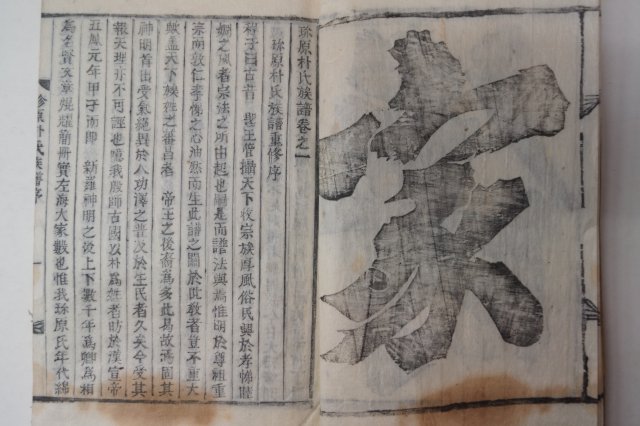 家
珎原朴氏族譜卷之一
珎原朴氏族譜重修序
程子曰古昔 聖王管攝天下收宗族厚風俗民興於孝悌睦
婣之風者宗法之所由起也嗣是而譜法興焉惟明於尊祖重
宗南敦仁孝悌之心油然而生此譜之關於世教者豈不重大
歟盖天下族姓之蕃昌者 帝王之後裔爲多此易故焉固其
神明首出受氣絶異於人功澤之普及於生民者久矣今受其
報天理亦不可誣也噫我殷師古國以朴爲姓者昉於漢宣帝
五鳳元年甲子而即 新羅神明之後上下數千年爲卿爲相
爲名賢文章焜耀簡冊實左海大家數也惟我珎原氏年代綿
珎原朴氏族譜序 一